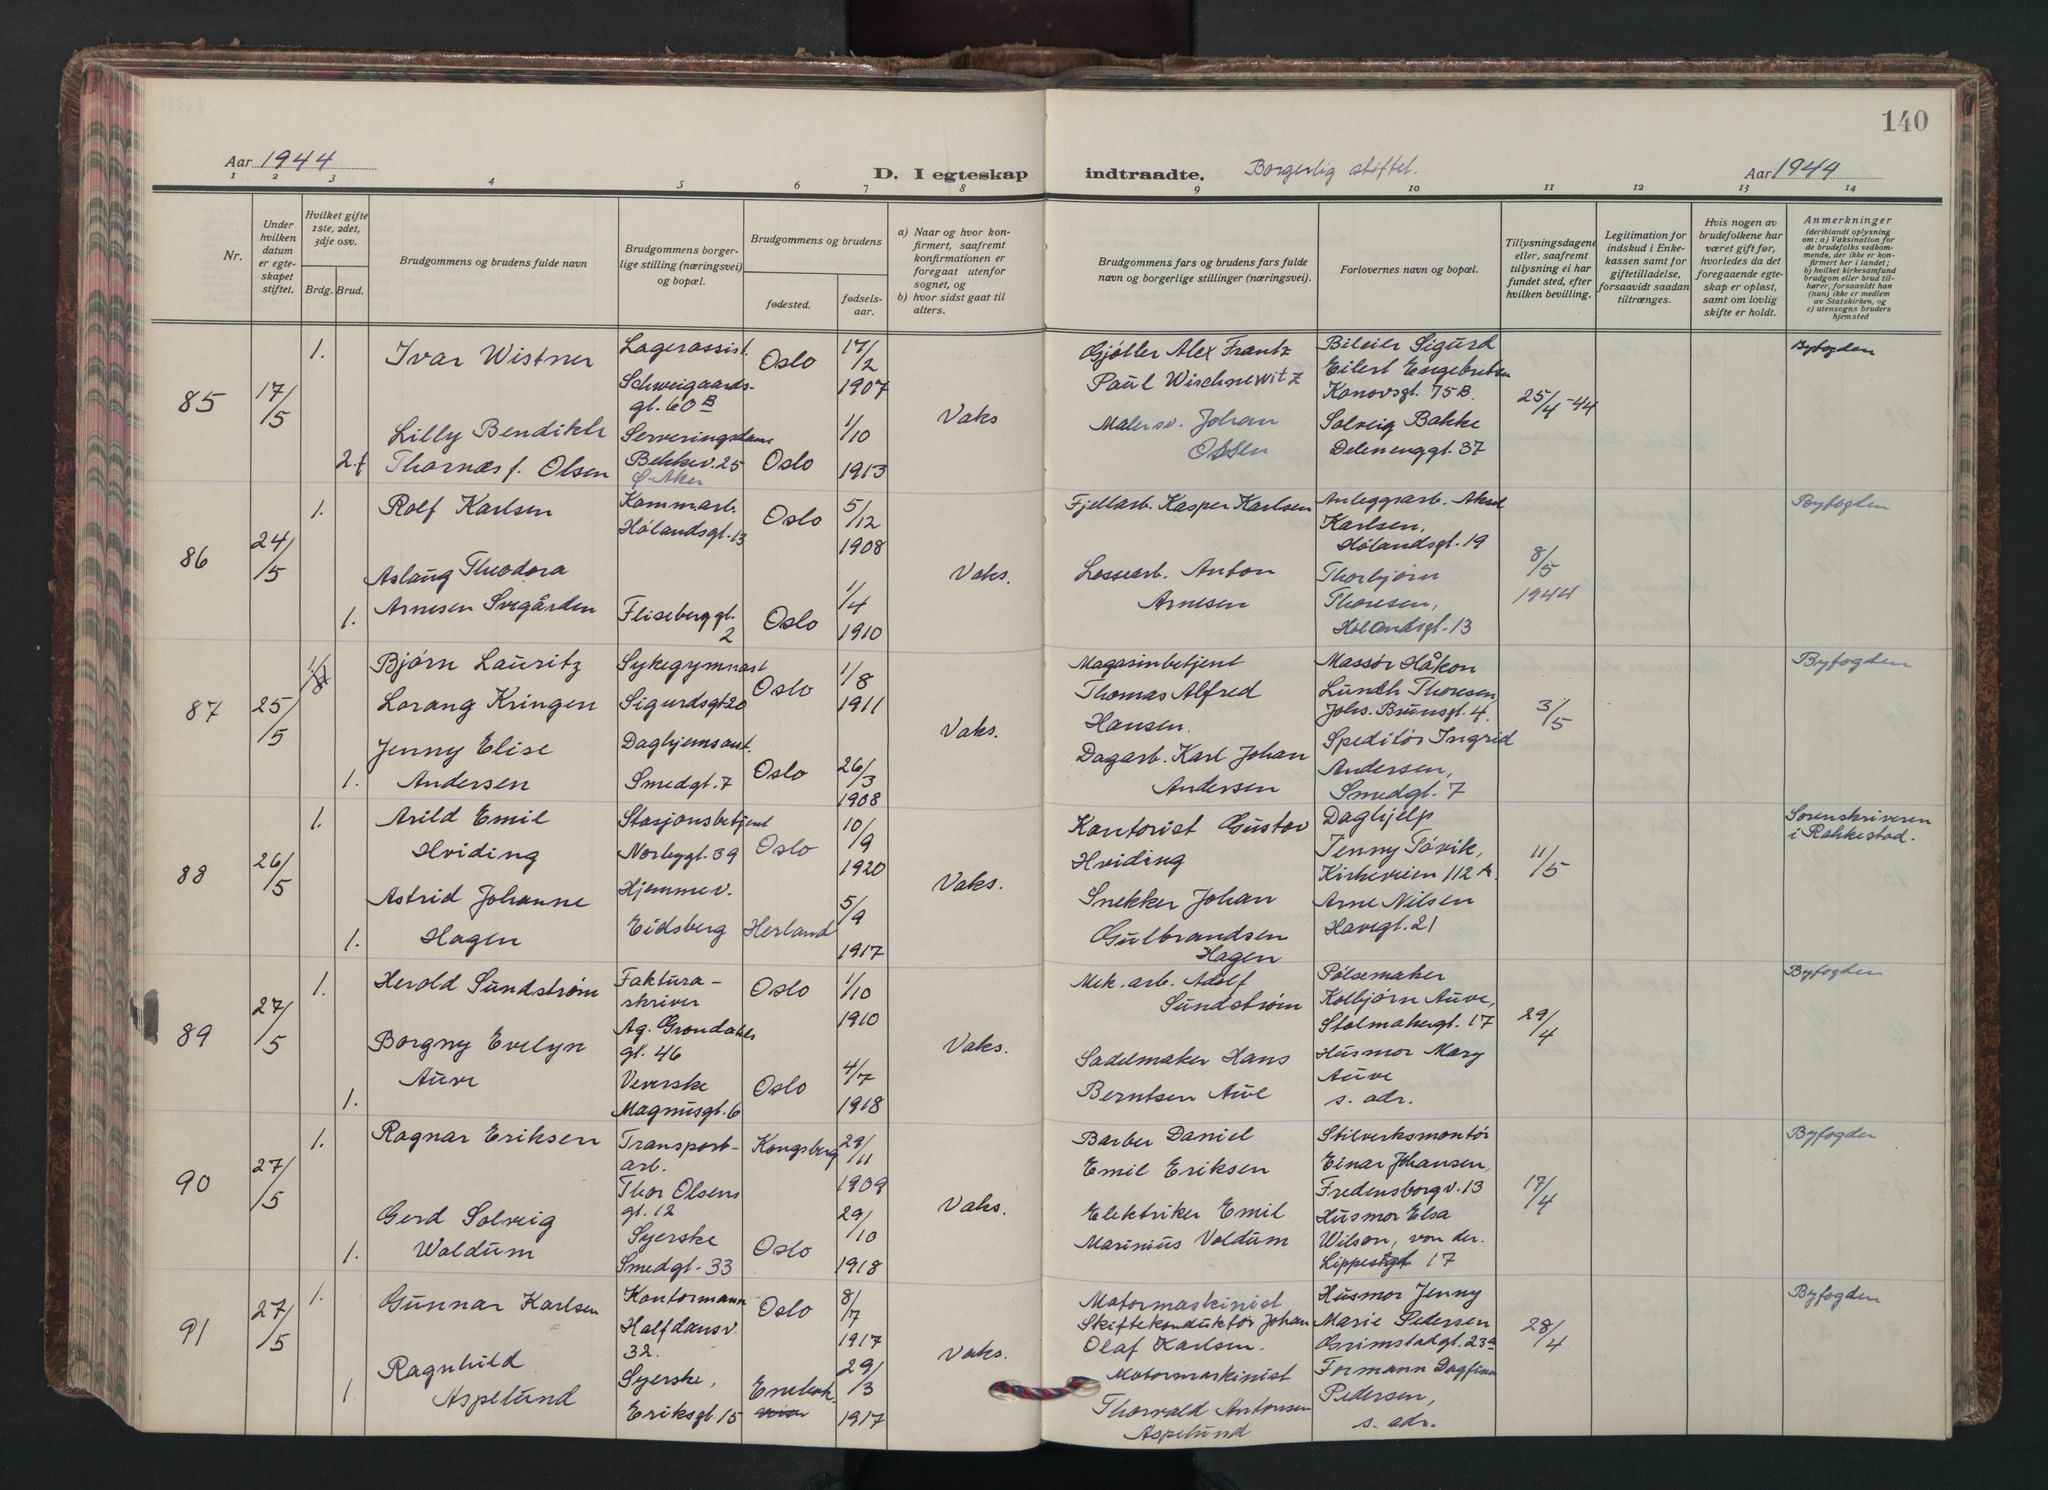 140
Aar 1944
D. I egteskap indtraadte.
Borgerlig stiftet.
Aar 1944
1 2 3 4 5 6 7 8 9 10 11 12 13 14
Nr.
Under hvilken datum er egte-skapet stiftet.
Hvilket gifte 1ste, 2det, 3dje osv.
Brdg. Brud.
Brudgommens og brudens fulde navn
Brudgommens borger-lige stilling (næringsvei) og bopæl.
Brudgommens og brudens
fødested.
fødsels-aar.
a) Naar og hvor kon-firmert, saafremt konfirmationen er foregaat utenfor sognet, og
b) hvor sidst gaat til alters.
Brudgommens fars og brudens fars fulde navn og borgerlige stillinger (næringsvei).
Forlovernes navn og bopæl.
Tillysningsdagene eller, saafremt tillysning ei har fundet sted, efter hvilken bevilling.
Legitimation for indskud i Enke-kassen samt for giftetilladelse, forsaavidt saadan tiltrænges.
Hvis nogen av brudefolkene har været gift før, hvorledes da det foregaaende egte-skap er opløst, samt om lovlig skifte er holdt.
Anmerkninger
(deriblandt oplysning om: a) Vaksination for de brudefolks vedkom-mende, der ikke er kon-firmert her i landet; b) hvilket kirkesamfund brudgom eller brud til-hører, forsaavidt han (hun) ikke er medlem av Statskirken, og c) utensogns bruders hjemsted
85 17/5
1. Ivar Wistner
Lagerassist.
Schweigaards-
gt. 60 B
Oslo 17/2 1907
2. f Lilly Bendikte
Thornæs f. Olsen
Serveringsdame
Bekkev. 25
Ø. Aker
Oslo 1/10 1913
Vaks
Gjøtler Alex Frantz
Paul Wischnewitz
Malersv. Johan
Olsen
Bileier Sigurd
Eilert Engebretsen
Kanovsgt. 75 B.
Solveig Bakke
Delenenggt. 37
25/4-44
Byfogden
86 24/5
1. Rolf Karlsen
Kommarb.
Hølandsgt. 13
Oslo 5/12 1908
1. Aslaug Theodora
Arnesen Svegården
Flisberggt.
2
Oslo 1/4 1910
Vaks.
Fjellarb. Kasper Karlsen
Lossearb. Anton
Arnesen
Anleggsarb. Aksel
Karlsen,
Hølandsgt. 19
Thorbjørn
Thoresen,
Hølandsgt. 13
8/5 1944
Byfogden
87 25/5
Bjørn Lauritz
Lorang Kringen
Sykegymnast
Sigurdsgt 20
Oslo 1/8 1911
1. Jenny Elise
Andersen
Daghjemsast.
Smedgt. 7
Oslo 26/3 1908
Vaks.
Magasinbetjent
Thomas Alfred
Hansen.
Dagarb. Karl Johan
Andersen
Massør Håkon
Lundh Thoresen,
Johs. Brunsgt. 4.
Speditør Ingrid
Andersen,
Smedgt. 7
3/5
Byfogden
88 26/5
1. Arild Emil
Hviding
Stasjonsbetjent
Norbygt. 39
Oslo 10/9 1920
1. Astrid Johanne
Hagen
Hjemmev.
Eidsberg
Herland 5/9 1917
Vaks.
Kontorist Gustav
Hviding
Snekker Johan
Gulbrandsen
Hagen
Daghjelp
Jenny Tøvik,
Kirkeveien 112 A.
Arne Nilsen
Havegt. 21
11/5
Sorenskriveren
i Rakkestad.
89 27/5
1. Herold Sundstrøm
Faktura-
skriver
Ag. Grøndahls
gt. 46
Oslo 1/10 1910
1. Borgny Evelyn
Auve
Veverske
Magnusgt. 6
Oslo 4/7 1918
Vaks.
Mek. arb. Adolf
Sundstrøm
Sadelmaker Hans
Berntsen Auve
Pølsemaker
Kolbjørn Auve,
Stolmakergt. 17
Husmor Mary
Auve
s. adr.
29/4
Byfogden
90 27/5
1. Ragnar Eriksen
Transport-
arb.
Thor Olsens
gt. 12
Kongsberg 29/11 1909
1. Gerd Solveig
Woldum
Syerske
Smedgt. 33
Oslo 29/10 1918
Vaks.
Barber Daniel
Emil Eriksen
Elektriker Emil
Marinius Voldum
Stilverksmontør
Einar Johansen,
Fredensborgv. 13
Husmor Elsa
Wilson, von der.
Lippesgt 17
17/4
Byfogden
91 27/5
1. Gunnar Karlsen
Kontormann
Halfdansv.
32.
Oslo 8/7 1917
1 Ragnhild
Aspelund
Syerske,
Eriksgt 15
Enebak 29/3 1917
Vaks.
Motormaskinist
Skiftekonduktør Johan
Olaf Karlsen.
Motormaskinist
Thorvald Antonsen
Aspelund
Husmor Jenny
Marie Pedersen
Grimstadgt. 23a
Formann Dagfinn
Pedersen,
s. adr.
28/4
Byfogden